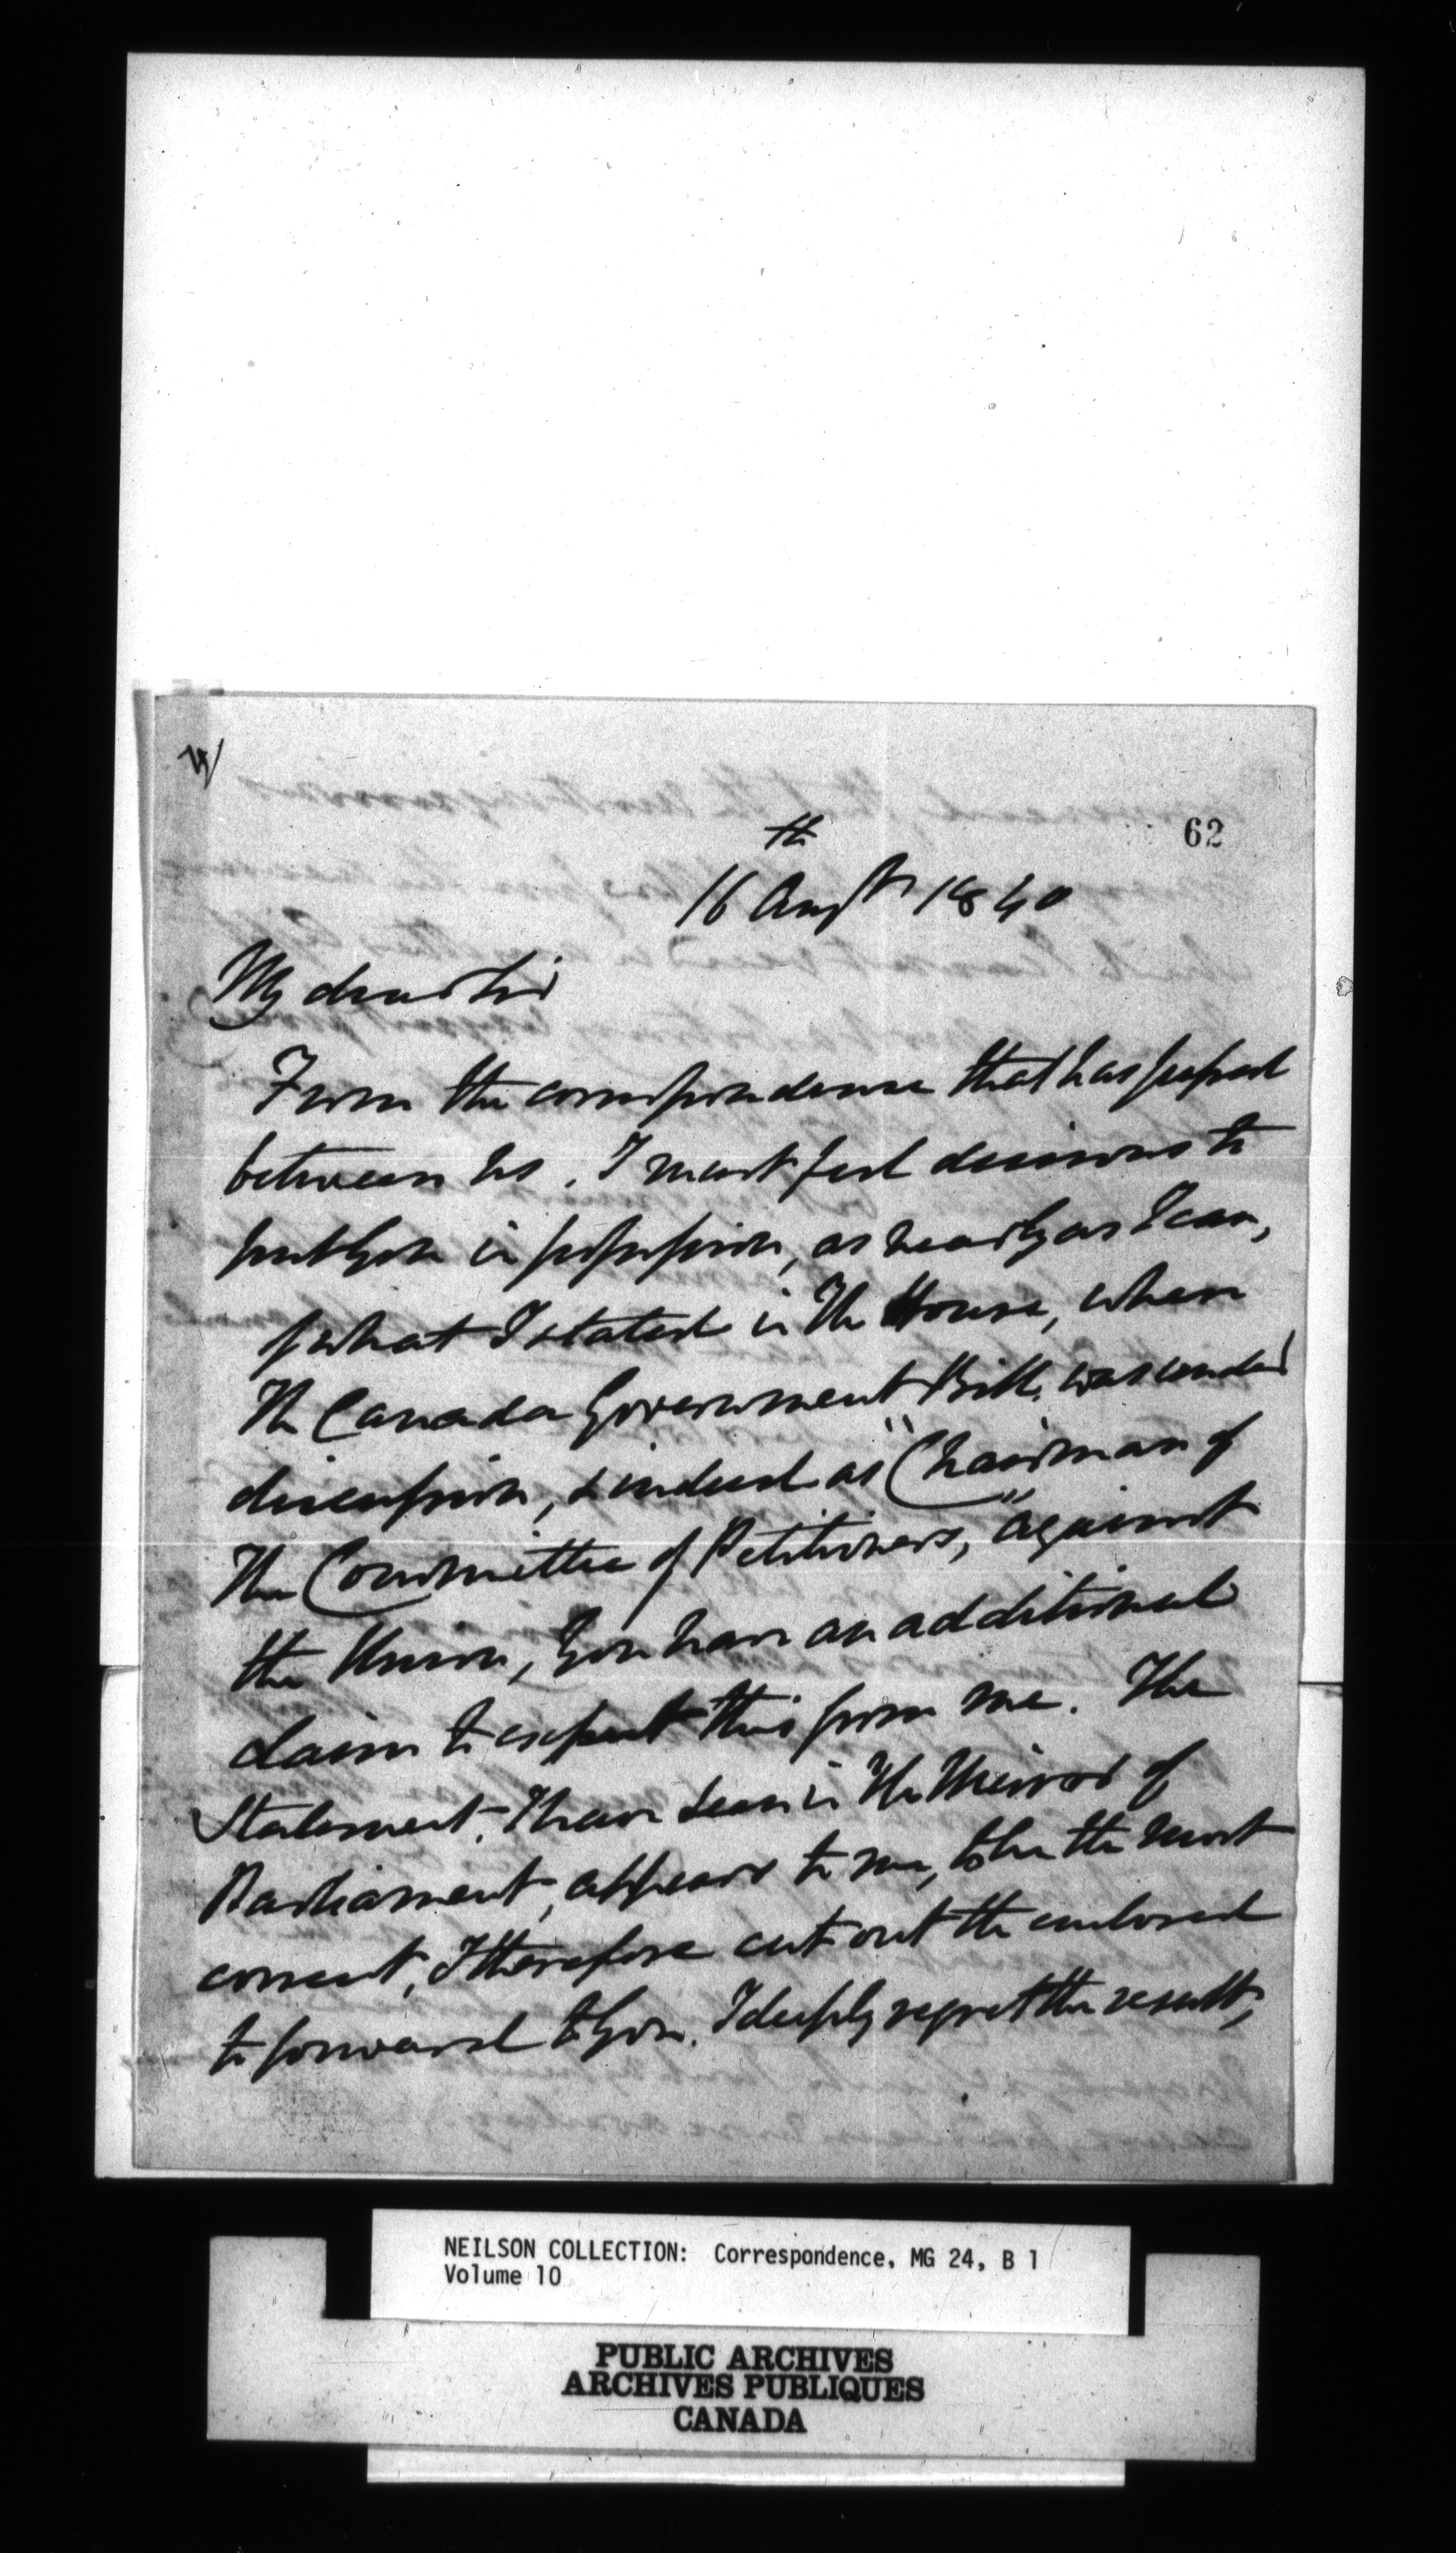 62
16th Augst 1840
My dear Sir
From the correspondence that has passed
between us, I must feel desirous to
put you in possession, as nearly as I can,
of what I stated in the House, when
the Canada Government Bill, was under
discussion, & indeed as "Chairman of
the Committee of Petitioners," against
the Union, you have an additional
claim to expect this from me. The
Statement, I have seen in the Mirror of
Parliament, appears to me, to be the most
correct, I therefore cut out the enclosed
to forward to you. I deeply regret the result,
NEILSON COLLECTION: Correspondence, MG 24, B 1
Volume 10
PUBLIC ARCHIVES
ARCHIVES PUBLIQUES
CANADA